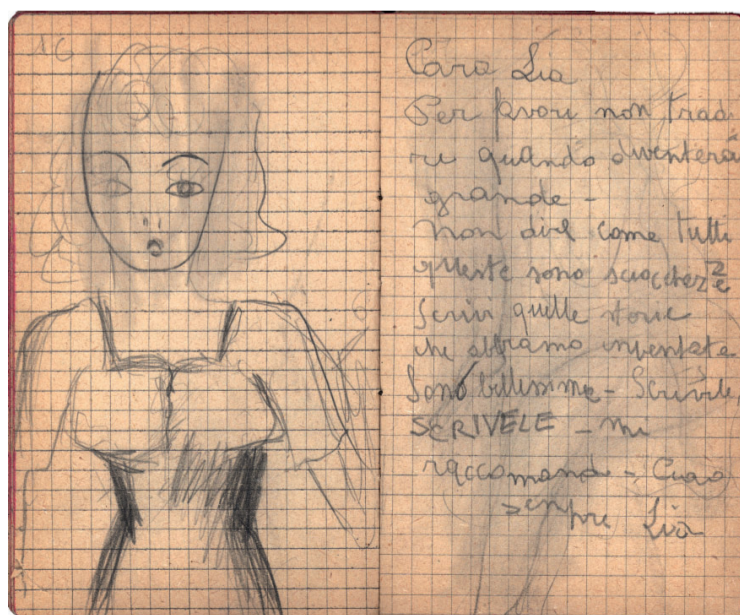 16
Cara Lia
Per favore non tradi
re quando diventerai
grande -
Non dire come tutti
queste sono sciocchezze
Scrivi quelle storie
che abbiamo inventate
Sono bellissime - Scrivile,
SCRIVELE - mi
raccomando - Ciao
sempre Lia